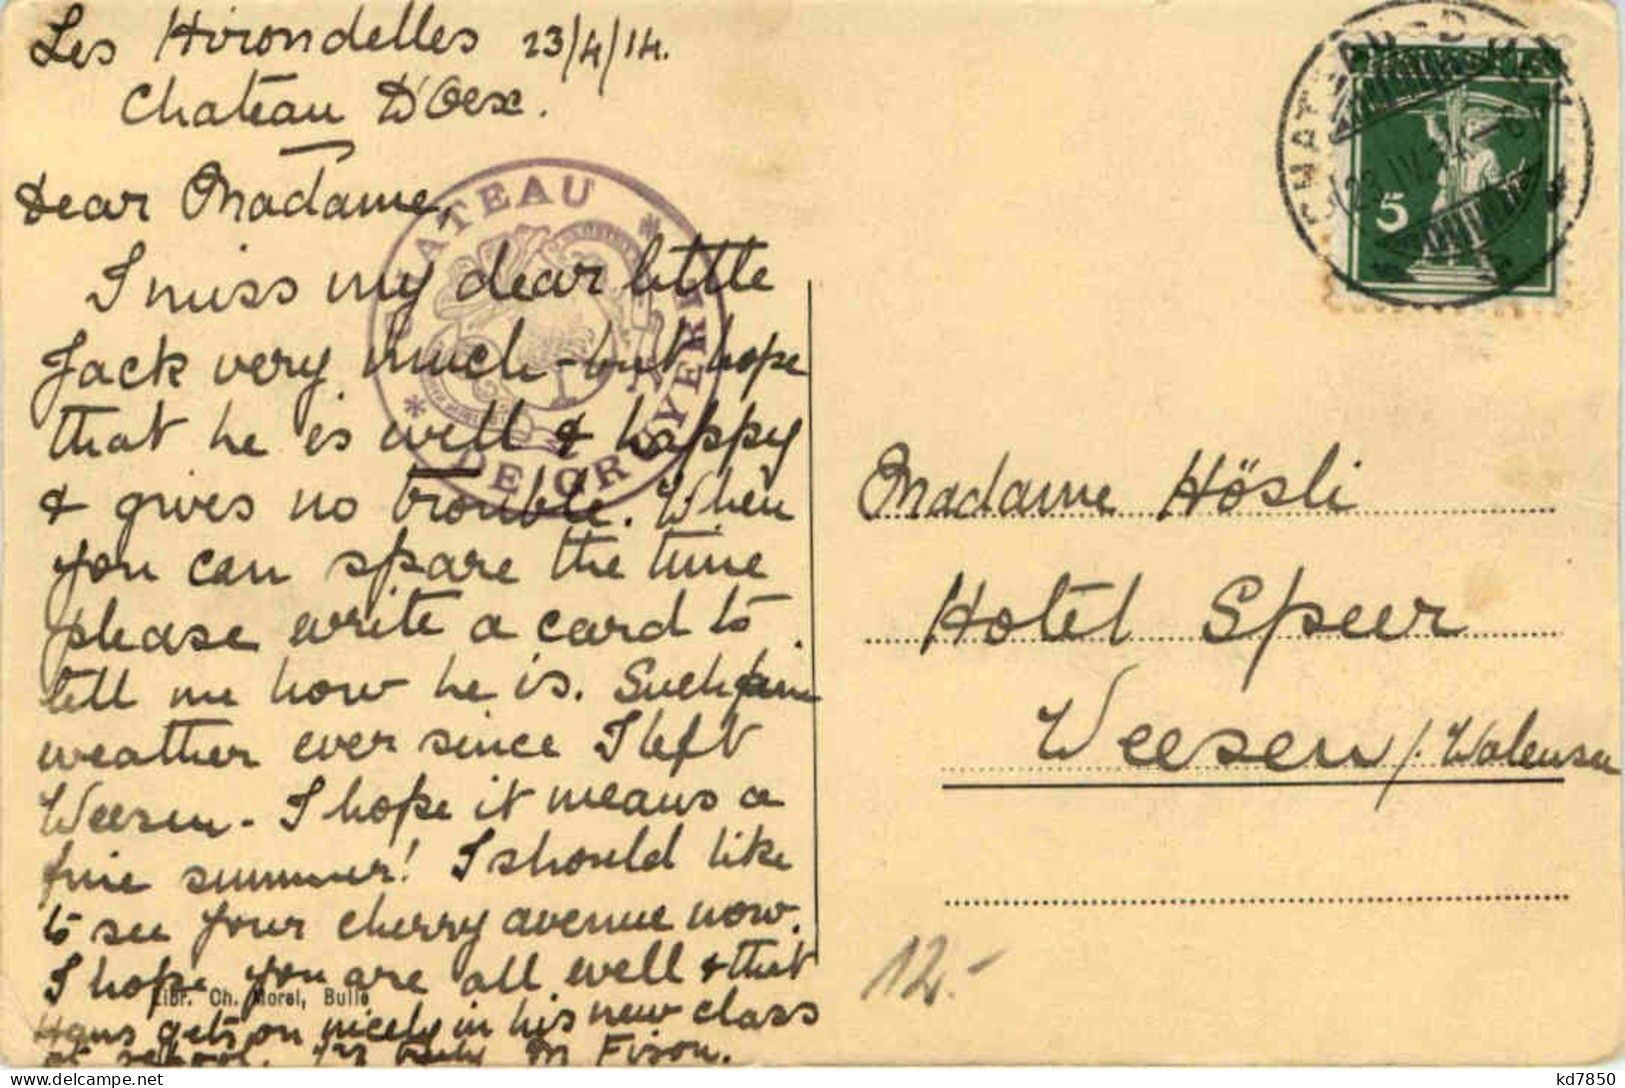 Les Hirondelles 23/4/14.
Chateau D'Oex.
Dear Madame,
I miss my dear little
Jack very much - but hope
that he is well & happy
& gives no trouble. When
you can spare the time
please write a card to
tell me how he is. Such fine
weather ever since I left
Weesen - I hope it means a
fine summer! I should like
to see your cherry avenue now.
I hope you are all well & that
Hans gets on nicely in his new class
at school. Yrs truly M Fison.
Libr. Ch. Morel, Bulle
CHATEAU
DE GRUYERE
CHATEAU-D'OEX
23.IV.14
5
Madame Hösli
Hotel Speer
Weesen / Walensee
12.-
kd7850